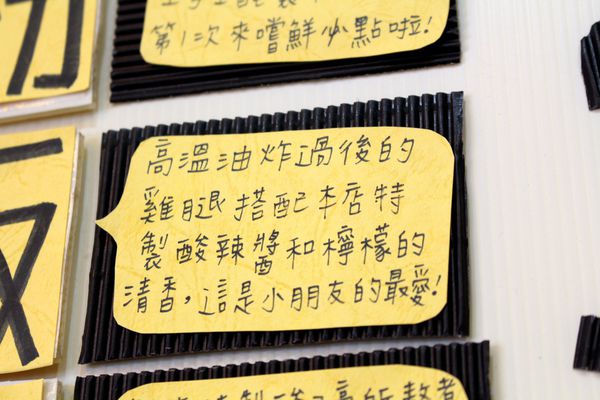 第1次來嚐鮮必點啦!
高溫油炸過後的
雞腿搭配本店特
製酸辣醬和檸檬的
清香,這是小朋友的最愛!